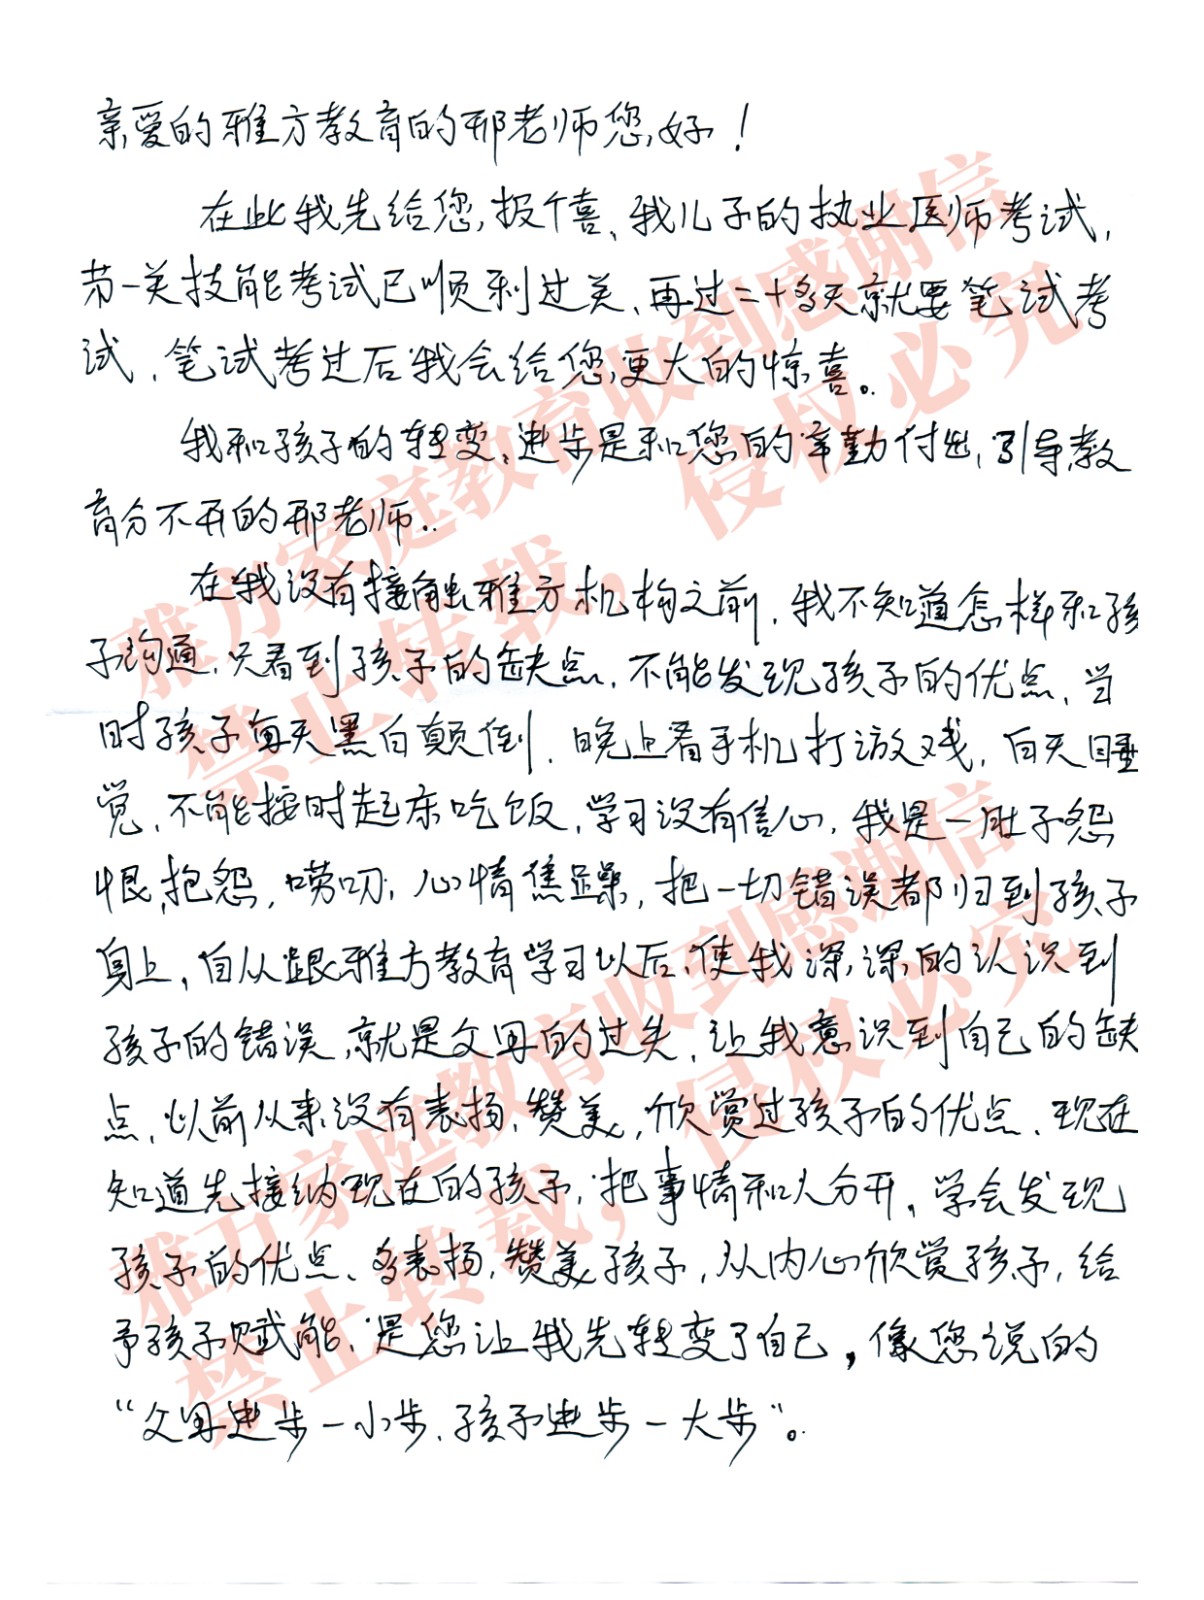 亲爱的雅方教育的邢老师您好!
在此我先给您报个喜、我儿子的执业医师考试,
第一关技能考试已顺利过关、再过二十多天就要笔试考
试、笔试考过后我会给您更大的惊喜。
我和孩子的转变、进步是和您的辛勤付出、引导教
育分不开的邢老师..
在我没有接触雅方机构之前,我不知道怎样和孩
子沟通,只看到孩子的缺点、不能发现孩子的优点、当
时孩子每天黑白颠倒、晚上看手机打游戏,白天睡
觉、不能按时起床吃饭,学习没有信心,我是一肚子怨
恨,抱怨,唠叨,心情焦躁,把一切错误都归到孩子
身上,自从跟雅方教育学习以后,使我深深的认识到
孩子的错误,就是父母的过失,让我意识到自己的缺
点,以前从来没有表扬,赞美,欣赏过孩子的优点、现在
知道先接纳现在的孩子,把事情和人分开,学会发现
孩子的优点、多表扬,赞美孩子,从内心欣赏孩子,给
予孩子赋能,是您让我先转变了自己,像您说的
“父母进步一小步,孩子进步一大步”。
雅方家庭教育收到感谢信
禁止转载,侵权必究
雅方家庭教育收到感谢信
禁止转载,侵权必究